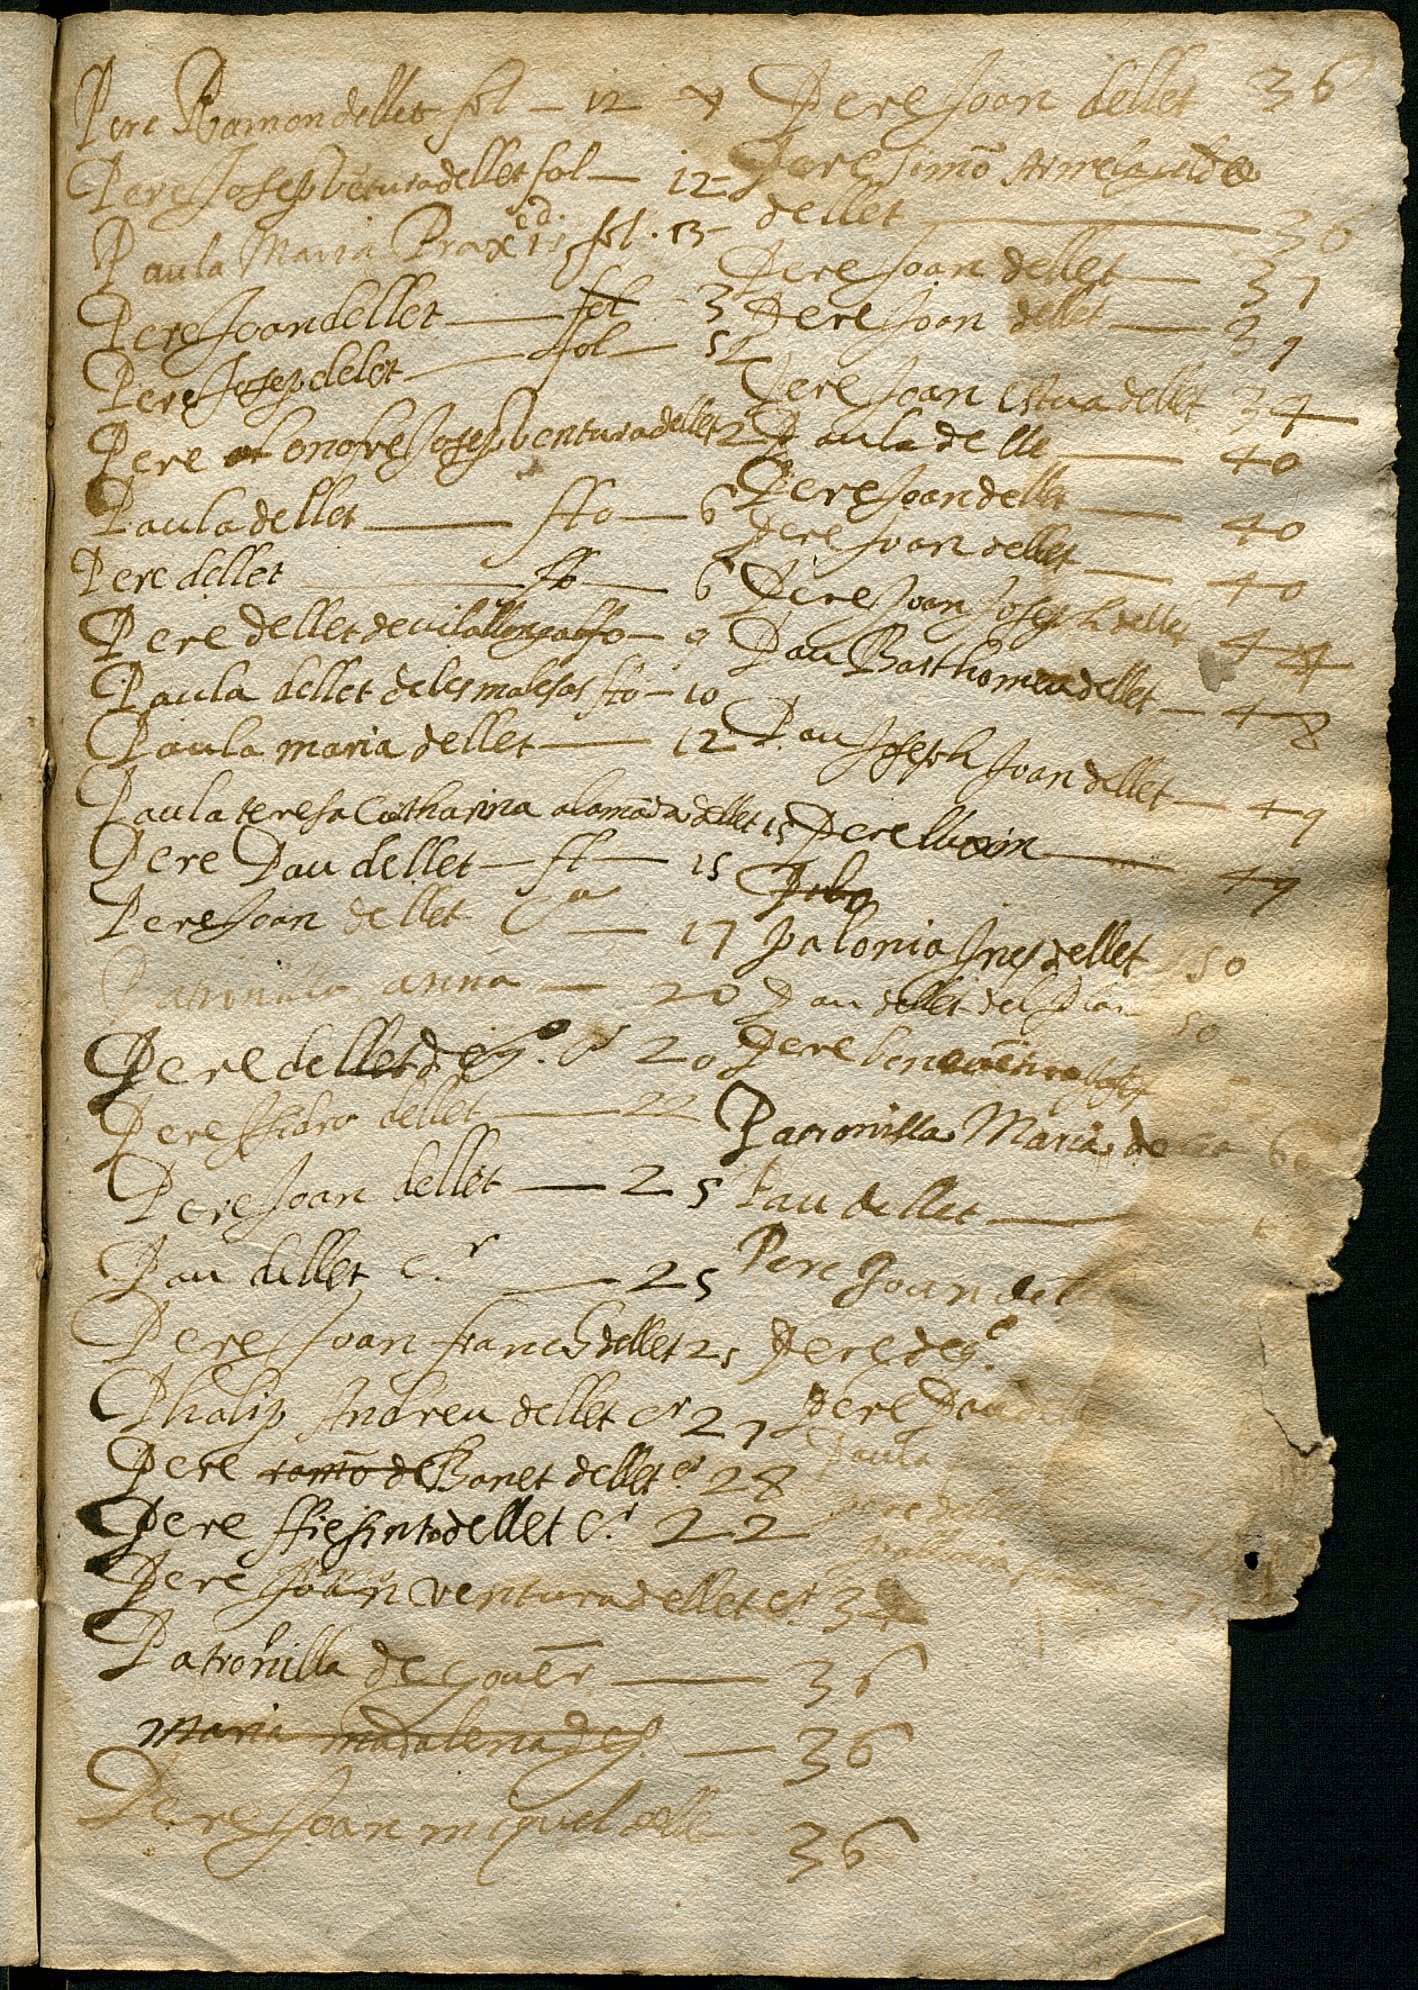 Pere Ramon dellet fol — 12
Pere Josep vētura dellet fol — 12
Paula Maria Praxedis fol. 13
Pere Joan dellet — fol 3
Pere Josep delet — fol — 51
Pere onofre Josep ventura dellet 2
Paula dellet — ffo — 6
Pere dellet — ffo — 6
Pere dellet de vilallonga ffo — 9
Paula dellet deles malesas ffo — 10
Paula maria dellet — 12
Paula teresa Catharina alamāda dellet 15
Pere Pau dellet — fl — 15
Pere Joan dellet — 17
Patronilla anna — 20
Pere dellet de 20
Pere Isidro dellet — 22
Pere Joan dellet — 25
Pau dellet c.r — 25
Pere Joan franch dellet 25
Phalip Andreu dellet cr 27
Pere ramō de Banet dellet cr 28
Pere ffiesinto dellet cr 22
Pere Joan ventura dellet cr 34
Patronilla de Gouēr — 36
Maria madalena de — 36
Pere Joan miquel delle 36
Pere Joan dellet 36
Pere simō
dellet — 36
Pere Joan dellet — 37
Pere Joan dellet — 39
Pere Joan esteva dellet 34
Paula delle — 40
Pere Joan dellet — 40
Pere Joan dellet — 40
Pere Joan Joseph dellet 44
Pau Barthomeu dellet — 48
Pau Joseph Joan dellet — 49
Pere lluoin — 49
palonia Ines dellet 50
Pau dellet del 50
Pere benavētura Josep
Patronilla Maria de 6
Pau dellet —
Pere Joan del
Pere de
Pere Pau
Paula
Pere